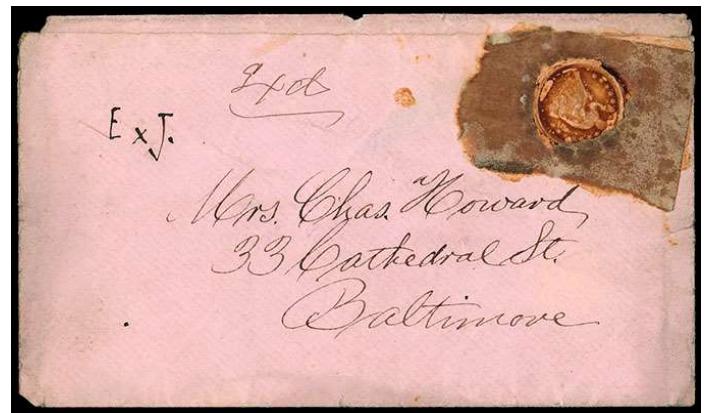 Exd
E x J.
Mrs. Chas. Howard,
33 Cathedral St.
Baltimore